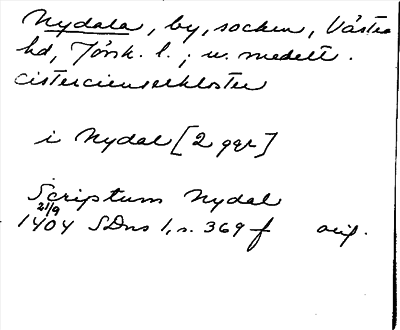 Nydala, by, socken, Västra
hd, Jönk. l.; u. medelt.
cistercienserkloster
i Nydal [2 ggr]
Scriptum Nydal
21/9
1404 SDns 1, s. 369 f orig.